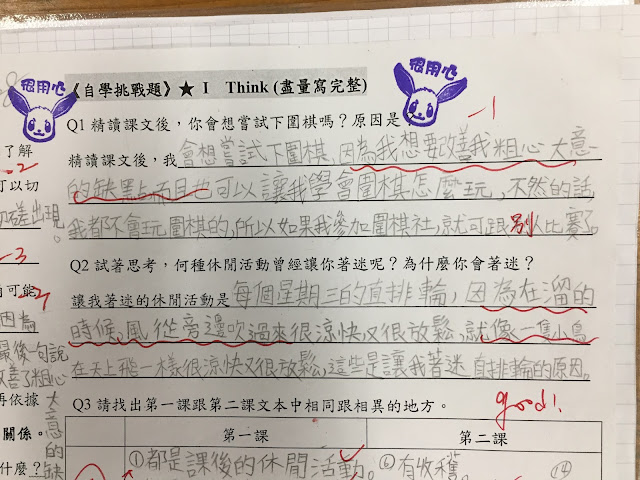 很用心
很用心
《自學挑戰題》★ I Think (盡量寫完整)
-1
Q1 精讀課文後，你會想嘗試下圍棋嗎？原因是
精讀課文後，我會想嘗試下圍棋，因為我想要改善我粗心大意
的缺點，而且也可以讓我學會圍棋怎麼玩，不然的話
我都不會玩圍棋的，所以如果我參加圍棋社，就可跟別以比賽了。
Q2 試著思考，何種休閒活動曾經讓你著迷呢？為什麼你會著迷？
讓我著迷的休閒活動是每個星期三的直排輪，因為在溜的
時候，風從旁邊吹過來很涼快又很放鬆，就像一隻小鳥
在天上飛一樣很涼快又很放鬆，這些是讓我著迷直排輪的原因。
good!
Q3 請找出第一課跟第二課文本中相同跟相異的地方。
第一課 第二課
①都是課後的休閒活動。 ⑥有收穫。 (14
了解
-2
可以切
切磋出現。
-3
自可能
因為
最後一句說
改善了粗心
再依據
大意的缺
關係。
什麼？